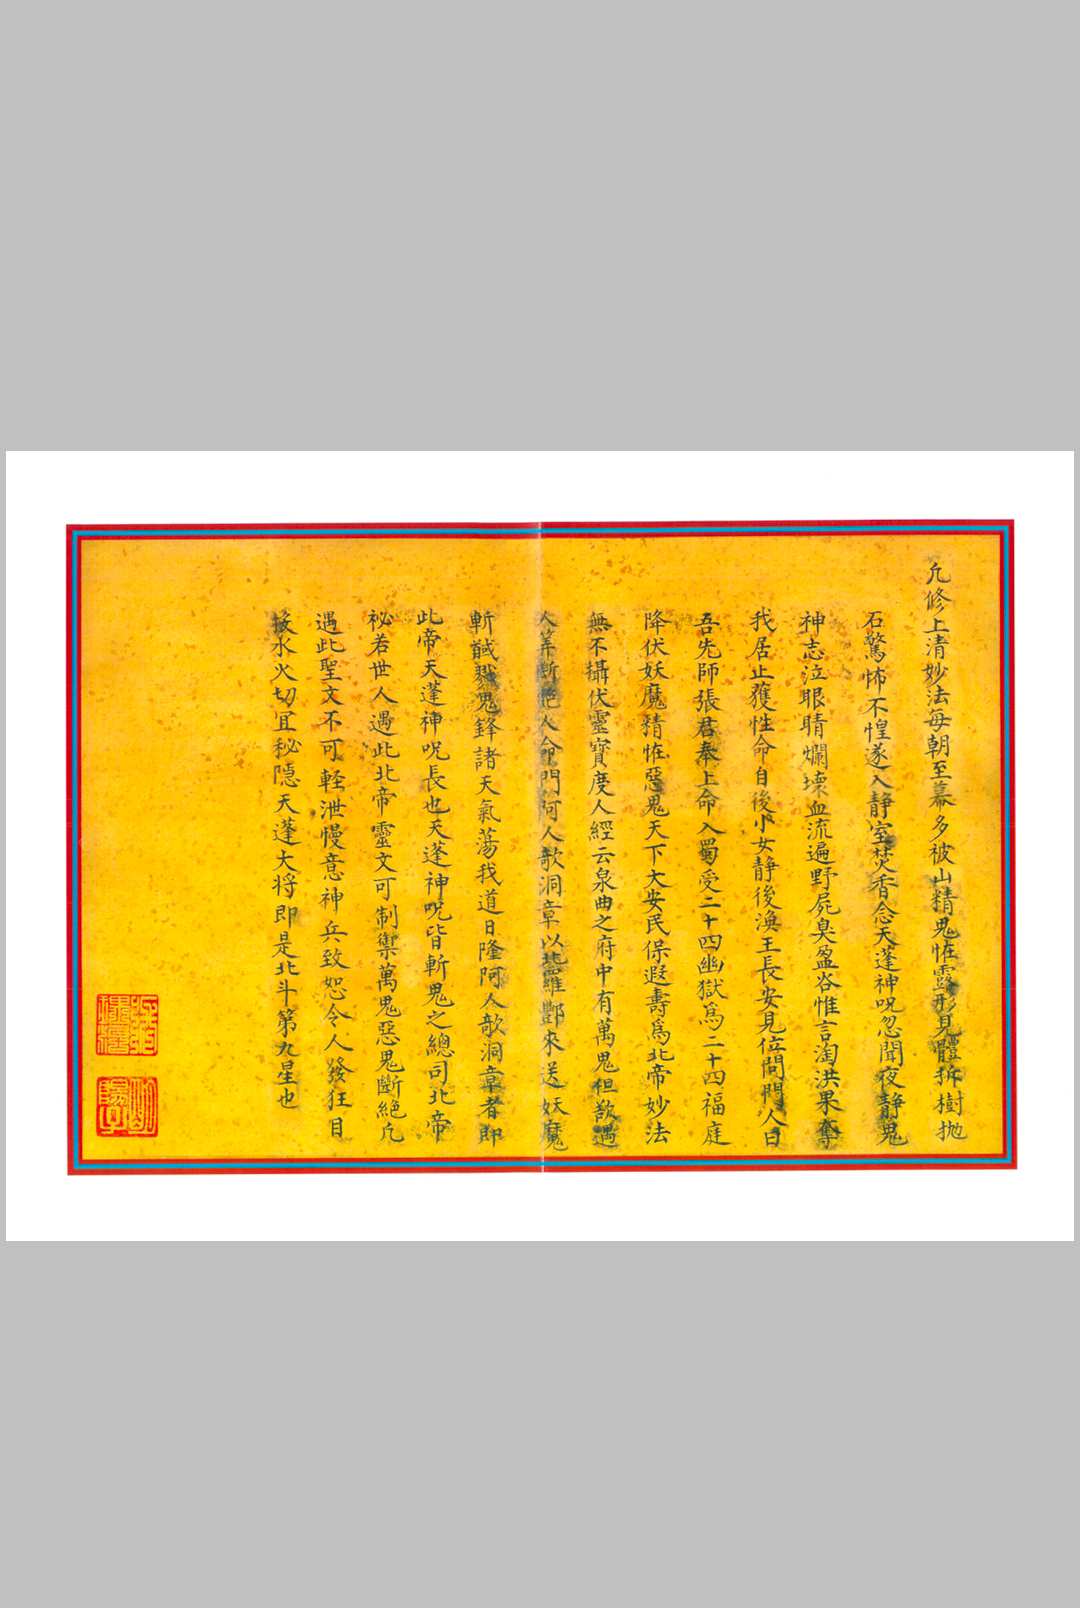 凡修上清妙法每朝至暮多被山精鬼恠露形見體拆樹拋
石驚怖不惶遂入静室焚香念天蓬神呪忽聞夜静鬼
神志泣眼睛爛壞血流遍野屍臭盈谷惟言淘洪果奪
我居止獲性命自後小女静後渙王長安見位問門人曰
吾先師張君奉上命入蜀受二十四幽獄為二十四福庭
降伏妖魔精恠惡鬼天下大安民保遐壽為北帝妙法
無不攝伏靈寶度人經云泉曲之府中有萬鬼但欲遏
人筭断絶人命門阿人歌洞章以北羅酆來送妖魔
斬馘戮鬼鋒諸天氣蕩我道日隆阿人歌洞章者即
此帝天蓬神呪長也天蓬神呪皆斬鬼之總司北帝
祕若世人遇此北帝靈文可制禦萬鬼惡鬼斷絶凡
遇此聖文不可輕泄慢意神兵致恕令人發狂目
投水火切宜秘隱天蓬大将即是北斗第九星也